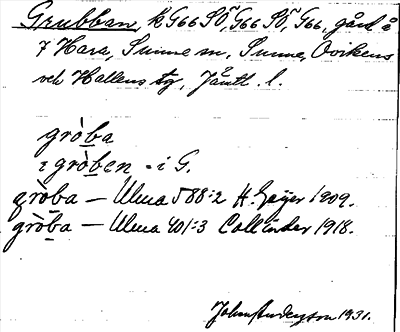 Grubban, k G66 SÖ, G66 SÖ, G66, gård å
7 Hara, Sunne sn, Sunne, Ovikens
och Hallens tg, Jämtl. l.
gròba
i gròben - i G.
gròba – Ulma 588:2 H. Geijer 1909.
gròba – Ulma 401:3 Collinder 1918.
John Anderzson 1931.